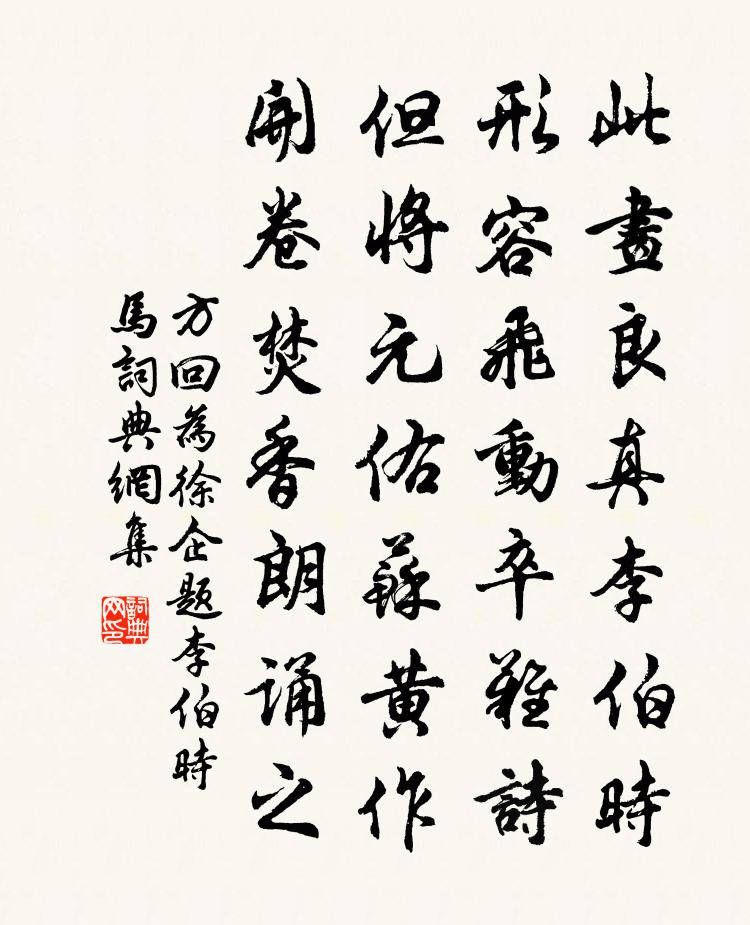 此畫良真李伯時
形容飛動卒難詩
但將元佑蘇黃作
開卷焚香朗誦之
方回為徐企題李伯時
馬詞典網集
詞典网印